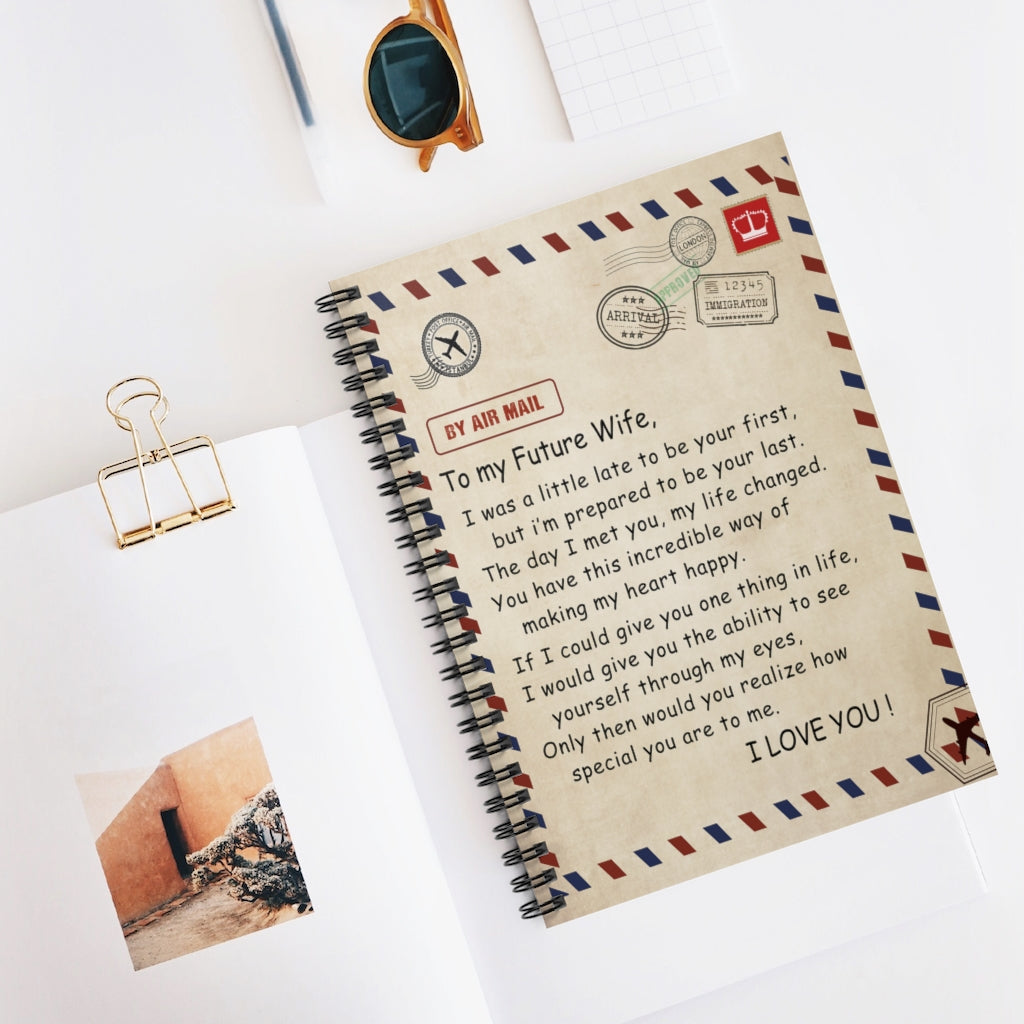 LONDON
APPROVED
12345
IMMIGRATION
ARRIVAL
BY AIR MAIL
To my Future Wife,
I was a little late to be your first,
but i'm prepared to be your last.
The day I met you, my life changed.
You have this incredible way of
making my heart happy.
If I could give you one thing in life,
I would give you the ability to see
yourself through my eyes,
Only then would you realize how
special you are to me.
I LOVE YOU !